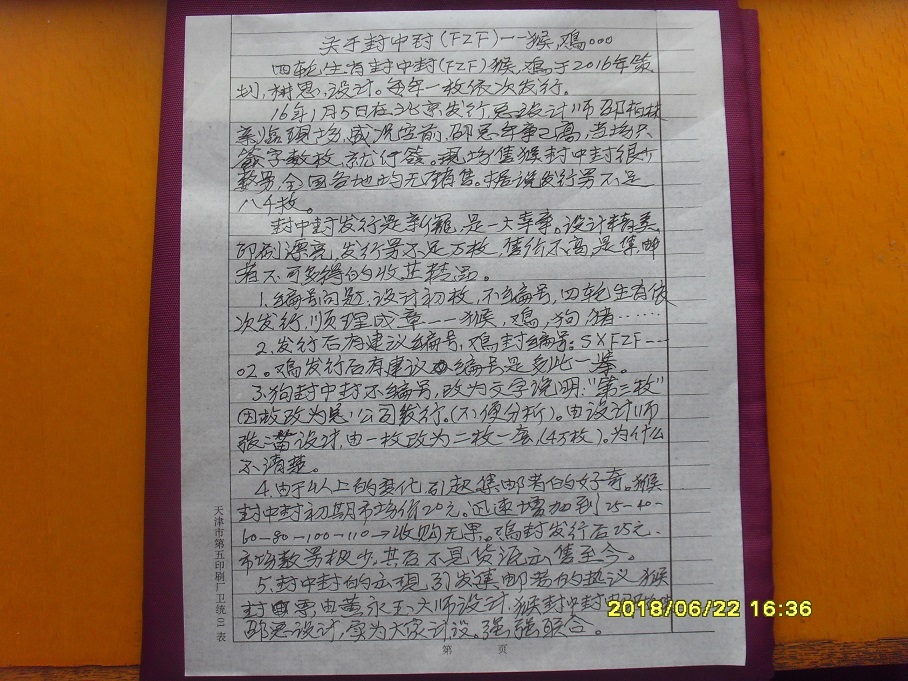 关于封中封(FZF)——猴,鸡。。。
四轮生肖封中封(FZF)猴,鸡于2016年策
划,构思,设计。每年一枚依次发行。
16年1月5日在北京发行,总设计师邵柏林
亲临现场,盛况空前,邵总年事已高,当场只
签字数枚,就停签。现场售猴封中封很少
数量,全国各地均无销售。据说发行量不足
八千枚。
封中封发行是新冠,是一大幸事。设计精美,
印刷漂亮,发行量不足万枚,售价不高,是集邮
者不可多得的收藏精品。
1.编号问题,设计初枚,不编号,四轮生肖依
次发行,顺理成章——猴,鸡,狗,猪……
2.发行后有建议编号,鸡封编号:SXFZF--
02。鸡发行后有建议编号是多此一举。
3.狗封中封不编号,改为文字说明:“第三枚”
因故改为总公司发行。(不便分析)。由设计师
张 设计,由一枚改为二枚一套(4万枚)。为什么
不清楚。
4.由于以上的变化,引起集邮者的好奇。猴
封中封初期市场价20元。迅速增加到25-40-
60-80-100-110→收购无果。鸡封发行后25元.
市场数量极少,其后不见货源出售至今。
5.封中封的出现,引发集邮者的热议,猴
封 票由黄永玉大师设计,猴封中封由
邵总设计,实为大众 议。强强联合。
天津市第五印刷厂卫统01表
第 页
2018/06/22 16:36